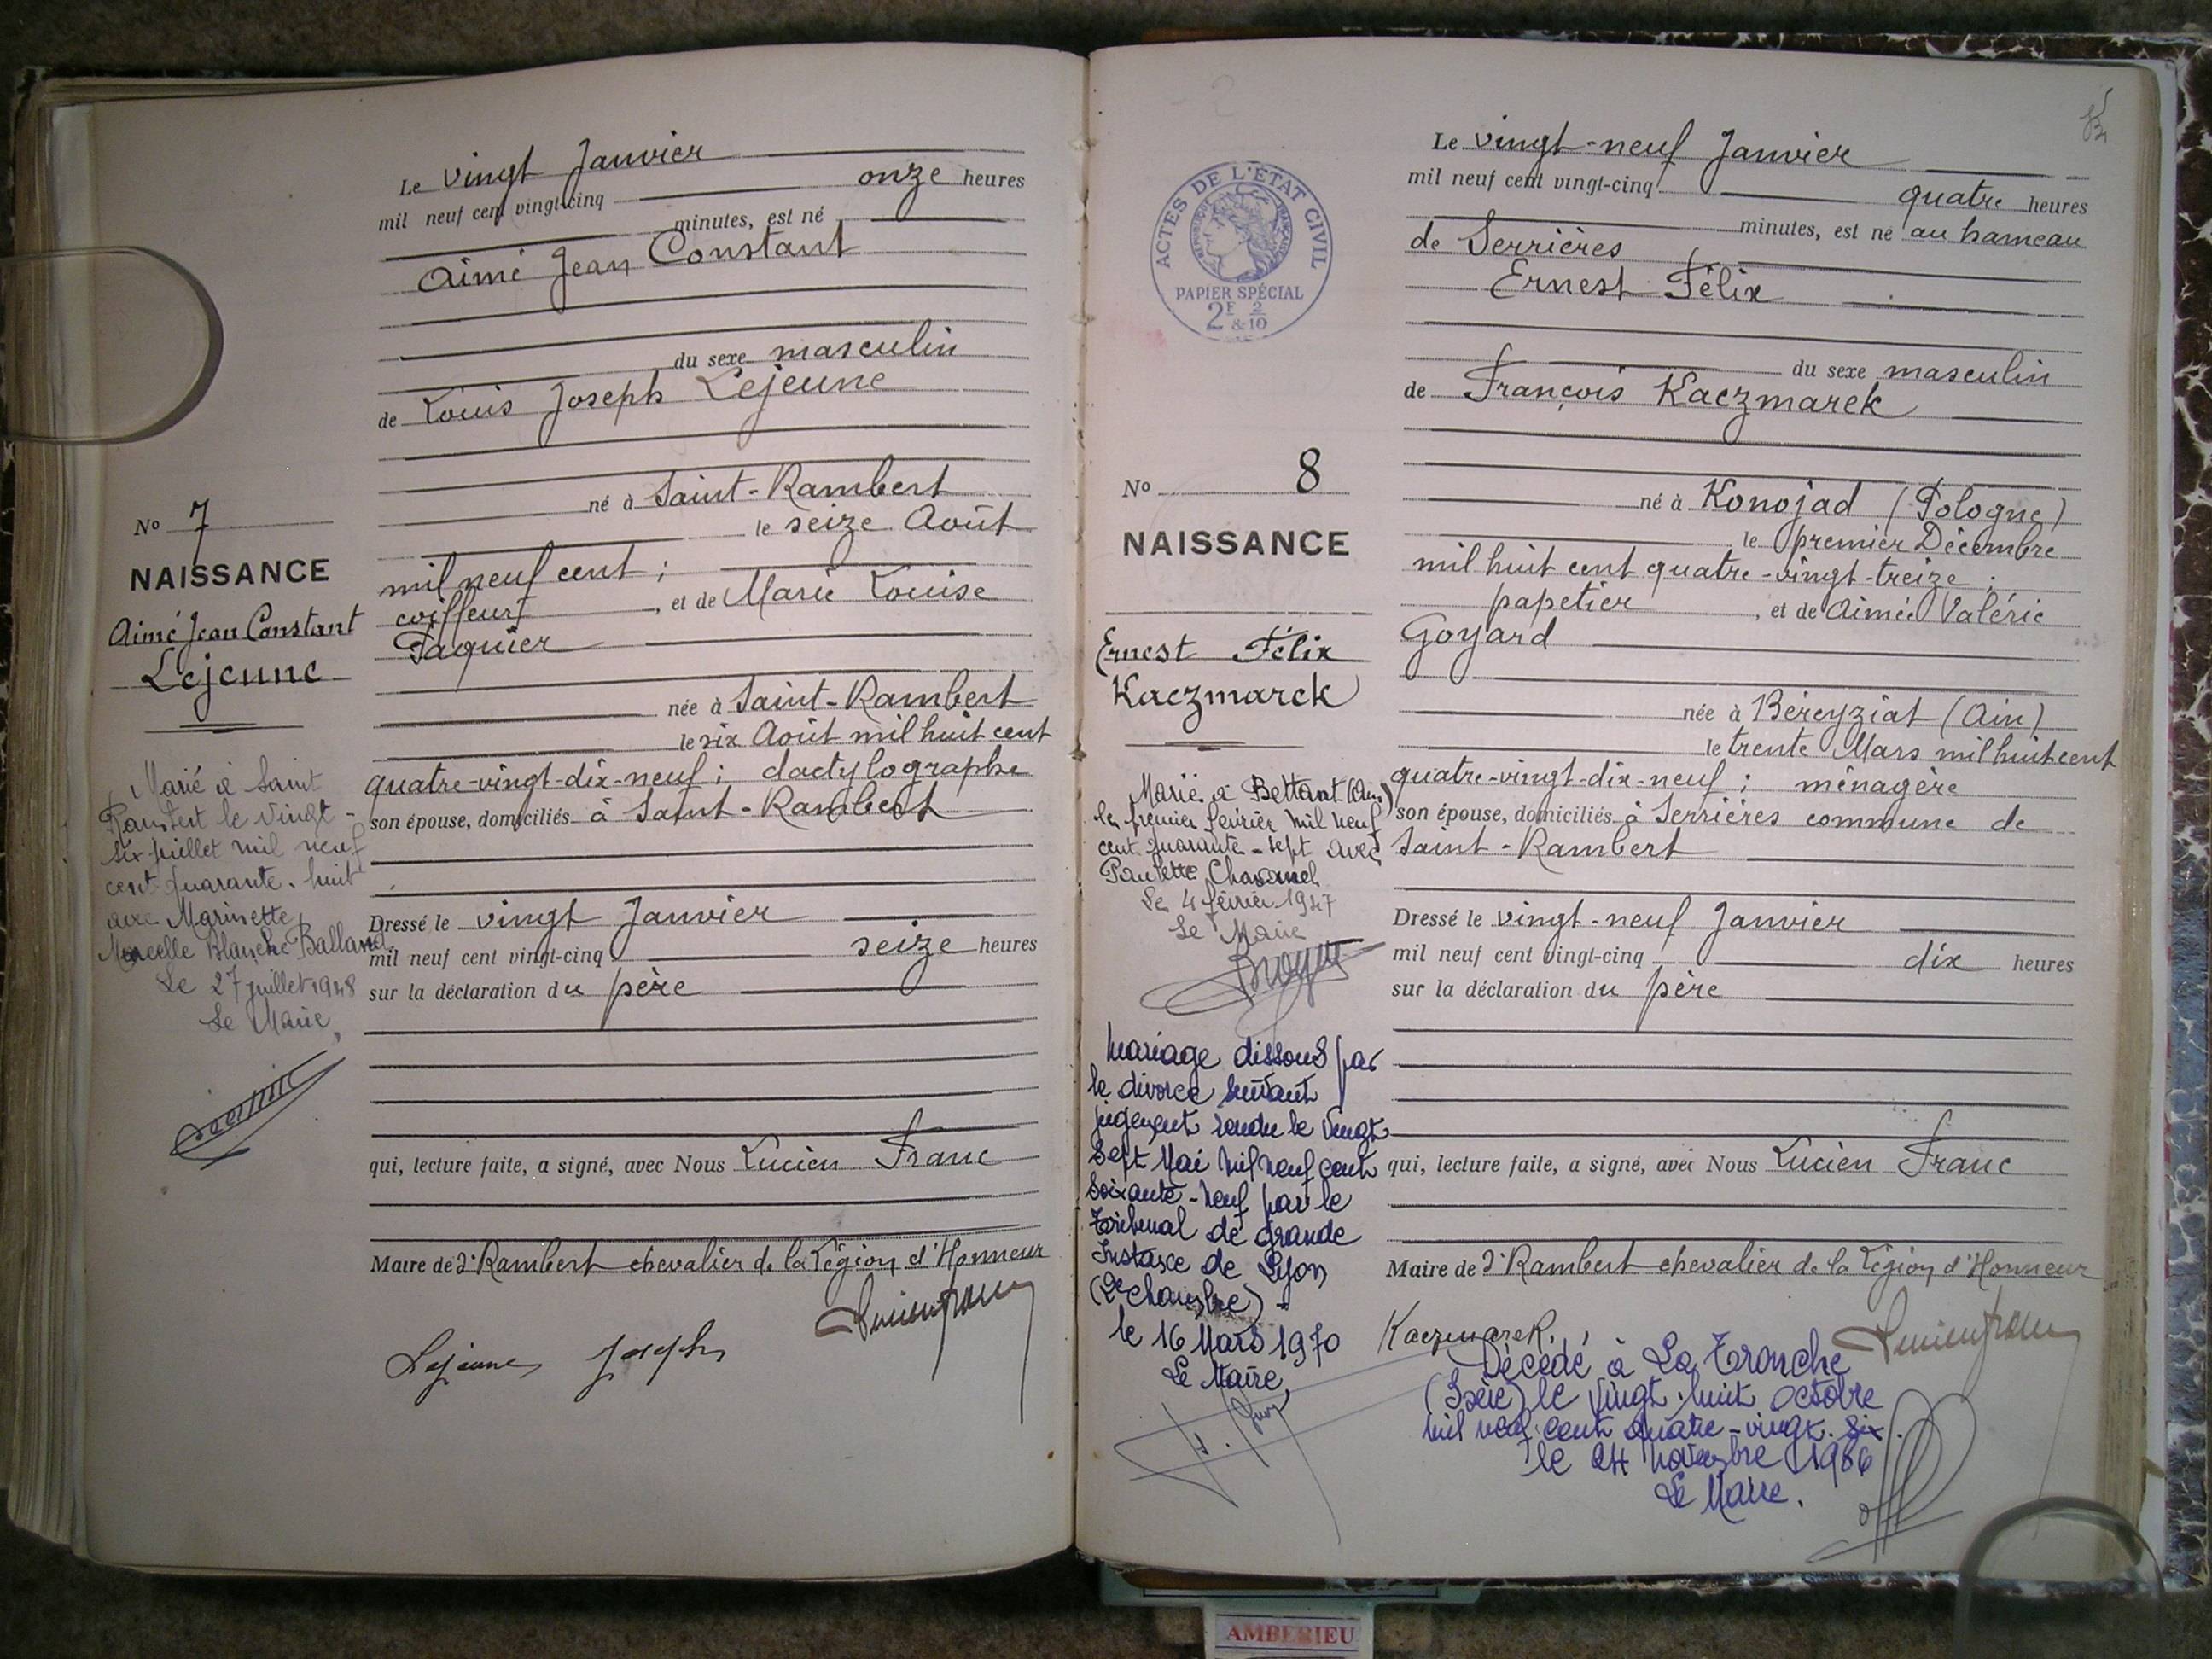 Le vingt Janvier
mil neuf cent vingt-cinq onze heures
minutes, est né
Aimé Jean Constant
du sexe masculin
de Louis Joseph Lejeune
né à Saint-Rambert
le seize Août
mil neuf cent ;
coiffeur, et de Marie Louise
Paquier
née à Saint-Rambert
le six Août mil huit cent
quatre-vingt-dix-neuf ; dactylographe
son épouse, domiciliés à Saint-Rambert
Dressé le vingt Janvier
mil neuf cent vingt-cinq seize heures
sur la déclaration du père
qui, lecture faite, a signé, avec Nous Lucien Franc
Maire de St Rambert chevalier de la Légion d'Honneur
Lejeune Joseph
No 7
NAISSANCE
Aimé Jean Constant
Lejeune
Marié à Saint
Rambert le vingt-
six juillet mil neuf
cent quarante-huit
avec Marinette
Marcelle Blanche Balland
Le 27 juillet 1948
Le Maire,
ACTES DE L'ÉTAT CIVIL
RÉPUBLIQUE FRANÇAISE
PAPIER SPÉCIAL
2F & 2/10
Le vingt-neuf Janvier
mil neuf cent vingt-cinq quatre heures
minutes, est né au hameau
de Serrières
Ernest Félix
du sexe masculin
de François Kaczmarek
né à Konojad (Pologne)
le premier Décembre
mil huit cent quatre-vingt-treize ;
papetier, et de Aimée Valérie
Goyard
née à Béreyziat (Ain)
le trente Mars mil huit cent
quatre-vingt-dix-neuf ; ménagère
son épouse, domiciliés à Serrières commune de
Saint-Rambert
Dressé le vingt-neuf Janvier
mil neuf cent vingt-cinq dix heures
sur la déclaration du père
qui, lecture faite, a signé, avec Nous Lucien Franc
Maire de St Rambert chevalier de la Légion d'Honneur
Kaczmarek.
Décédé à La Tronche
(Isère) le vingt-huit octobre
mil neuf cent quatre-vingt-six.
le 24 novembre 1986
Le Maire.
No 8
NAISSANCE
Ernest Félix
Kaczmarek
Marié à Bettant (Ain)
le premier février mil neuf
cent quarante-sept avec
Paulette
Le 4 février 1947
Le Maire
Mariage dissous par
le divorce suivant
jugement rendu le vingt
sept Mai mil neuf cent
soixante-neuf par le
Tribunal de grande
Instance de Lyon
(2e chambre)
le 16 Mars 1970
Le Maire,
AMBERIEU